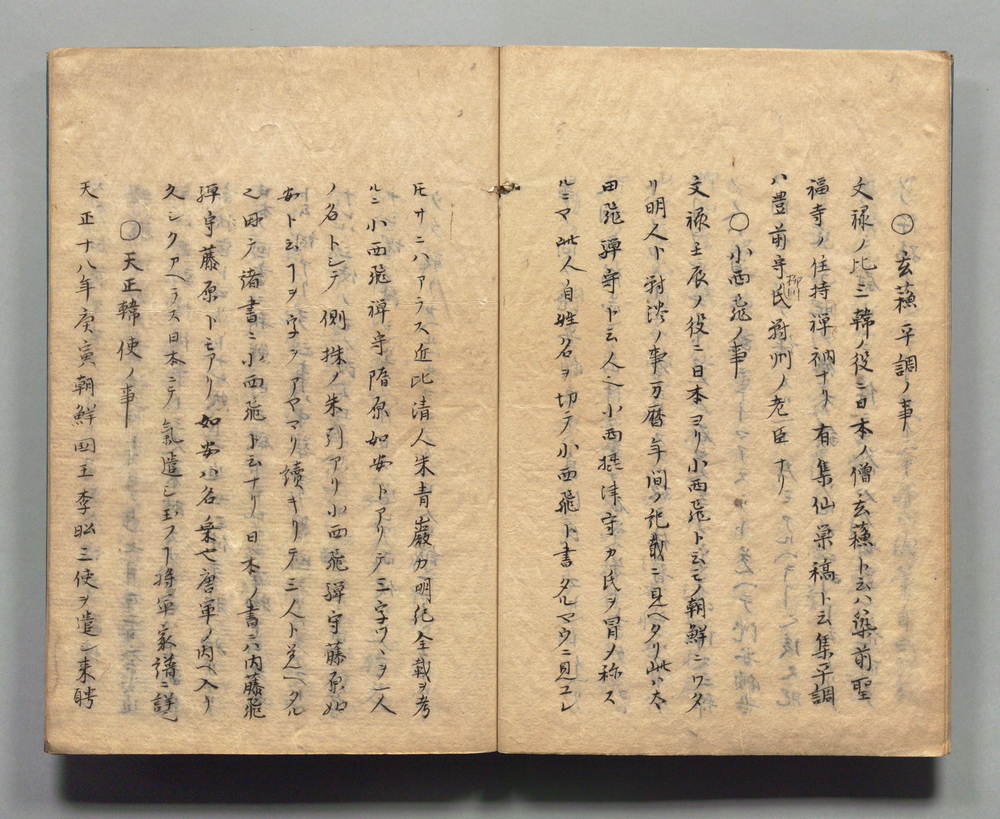 ○玄蘓平調ノ事
文禄ノ比三韓ノ役ニ日本ノ僧玄蘓ト云ハ築前聖
福寺ノ住持禅衲ナリ有集仙巣稿ト云集平調
ハ豊前守氏柳川對州ノ老臣ナリ
○小西飛ノ事
文禄壬辰ノ役ニ日本ヨリ小西飛ト云モノ朝鮮ニワタ
リ明人ト對談ノ事万暦年間ノ記載ニ見ヘタリ此ハ本
田飛騨守ト云人ニ小西攝津守カ氏ヲ冒ノ称ス
ルニマ此人自姓名ヲ切テ小西飛ト書タルマウニ見ユレ
𪜈サニハアラス近比清人朱青巖カ明紀全載ヲ考
ルニ小西飛禅守隋原如安トアリテ三字ツヽヲ一人
ノ名トシテ側抹ノ朱引アリ小西飛騨守藤原如
安ト云フヲ字ヲアヤマリ讀キリテ三人ト覚ヘタル
之故ニ諸書ニ小西飛ト云ナリ日本ノ書ニハ内藤飛
騨守藤原トモアリ如安ハ名乗也唐軍ノ内ヘ入リ
久シクアヘラス日本ニテ氣遣シ玉フト将軍家譜ニ詳
○天正韓使ノ事
天正十八年庚寅朝鮮国王李昖三使ヲ遣シ来聘